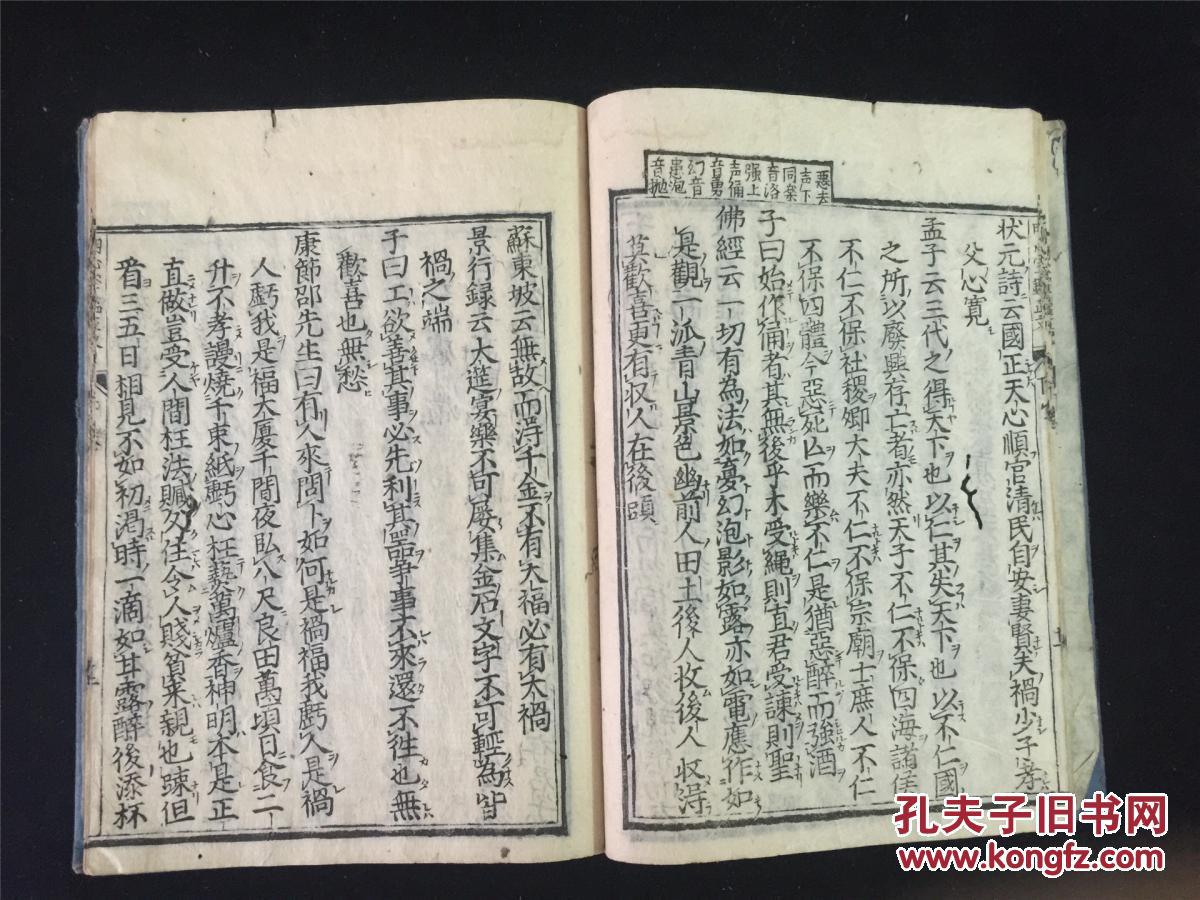 悪去
声下
同楽
音洛
强上
声俑
音勇
幻音
患泡
音抛
状元詩云國正天心順官清民自安妻賢夫禍少子孝
父心寛
孟子云三代之得天下也以仁其失天下也以不仁國
之所以廢興存亡者亦然天子不仁不保四海諸侯
不仁不保社稷卿大夫不仁不保宗廟士庶人不仁
不保四體今惡死亡而樂不仁是猶惡醉而强酒
子曰始作俑者其無後乎木受縄則直君受諫則聖
佛經云一切有為法如夢幻泡影如露亦如電應作如
是觀一派青山景色幽前人田土後人收後人収得
莫歡喜更有収人在後頭
蘇東坡云無故而得千金不有大福必有大禍
景行録云大筵宴樂不可屡集金石文字不可輕為皆
禍之端
子曰工欲善其事必先利其器爭事不來還不徃也無
歡喜也無愁
康節邵先生曰有人來問卜如何是禍福我虧人是禍
人虧我是福大厦千間夜臥八尺良田萬頃日食二
升不孝謾燒千束紙虧心枉爇萬爐香神明本是正
直做豈受人間枉法贓久住令人賤貧來親也踈但
看三五日相見不如初渇時一滴如甘露醉後添杯
孔夫子旧书网
www.kongfz.com